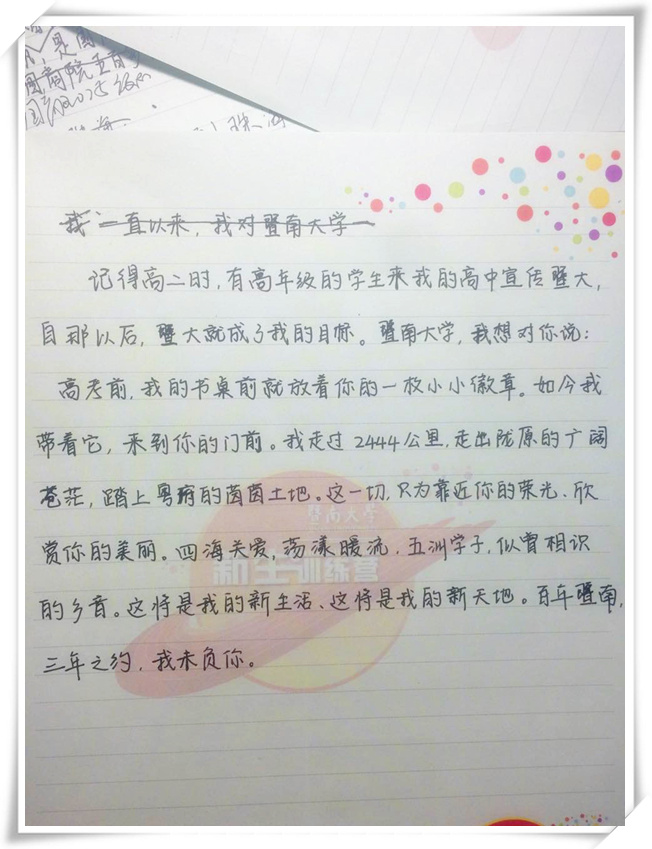 我 一直以来，我对暨南大学
记得高二时，有高年级的学生来我的高中宣传暨大，
自那以后，暨大就成了我的目标。暨南大学，我想对你说：
高考前，我的书桌前就放着你的一枚小小徽章。如今我
带着它，来到你的门前。我走过2444公里，走出陇原的广阔
苍茫，踏上粤府的茵茵土地。这一切，只为靠近你的荣光、欣
赏你的美丽。四海关爱，荡漾暖流，五洲学子，似曾相识
的乡音。这将是我的新生活、这将是我的新天地。百年暨南，
三年之约，我未负你。
暨南大学
新生训练营